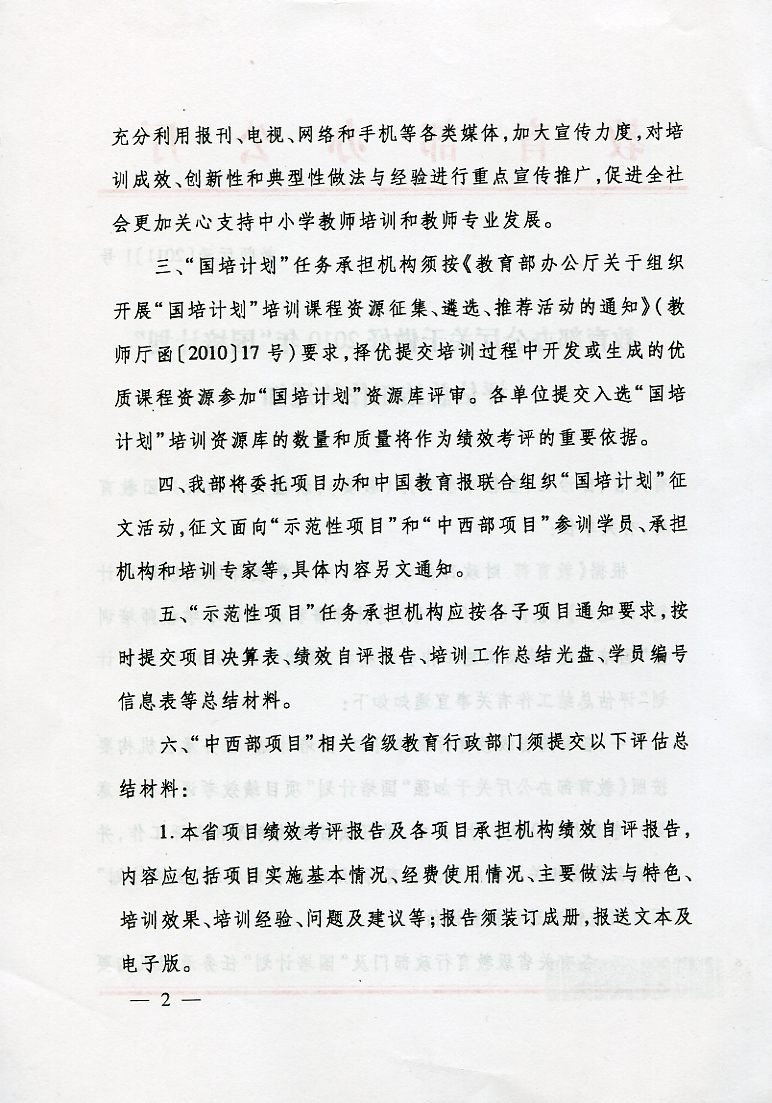 充分利用报刊、电视、网络和手机等各类媒体,加大宣传力度,对培
训成效、创新性和典型性做法与经验进行重点宣传推广,促进全社
会更加关心支持中小学教师培训和教师专业发展。
三、“国培计划”任务承担机构须按《教育部办公厅关于组织
开展“国培计划”培训课程资源征集、遴选、推荐活动的通知》(教
师厅函〔2010〕17 号)要求,择优提交培训过程中开发或生成的优
质课程资源参加“国培计划”资源库评审。各单位提交入选“国培
计划”培训资源库的数量和质量将作为绩效考评的重要依据。
四、我部将委托项目办和中国教育报联合组织“国培计划”征
文活动,征文面向“示范性项目”和“中西部项目”参训学员、承担
机构和培训专家等,具体内容另文通知。
五、“示范性项目”任务承担机构应按各子项目通知要求,按
时提交项目决算表、绩效自评报告、培训工作总结光盘、学员编号
信息表等总结材料。
六、“中西部项目”相关省级教育行政部门须提交以下评估总
结材料:
1. 本省项目绩效考评报告及各项目承担机构绩效自评报告,
内容应包括项目实施基本情况、经费使用情况、主要做法与特色、
培训效果、培训经验、问题及建议等;报告须装订成册,报送文本及
电子版。
— 2 —